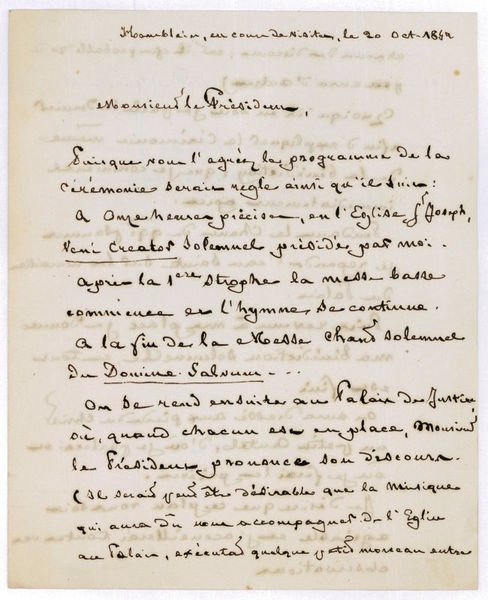 en cours de visites, le 20 Oct. 184
Monsieur le Président,
Puisque vous l'agréez le programme de la
cérémonie serait réglé ainsi qu'il suit:
A onze heures précises, en l'Eglise St Joseph,
Veni Creator solemnel présidé par moi.
après la 1ere strophe la messe basse
commence et l'hymne se continue.
A la fin de la Messe chant solemnel
du Domine Salvum ...
On se rend ensuite au Palais de Justice
où, quand chacun est en place, Monsieur
le Président prononce son discours.
(Il serait peut être désirable que la Musique
qui aura dû nous accompagner de l'Eglise
au Palais, exécutat quelque petit morceau entre